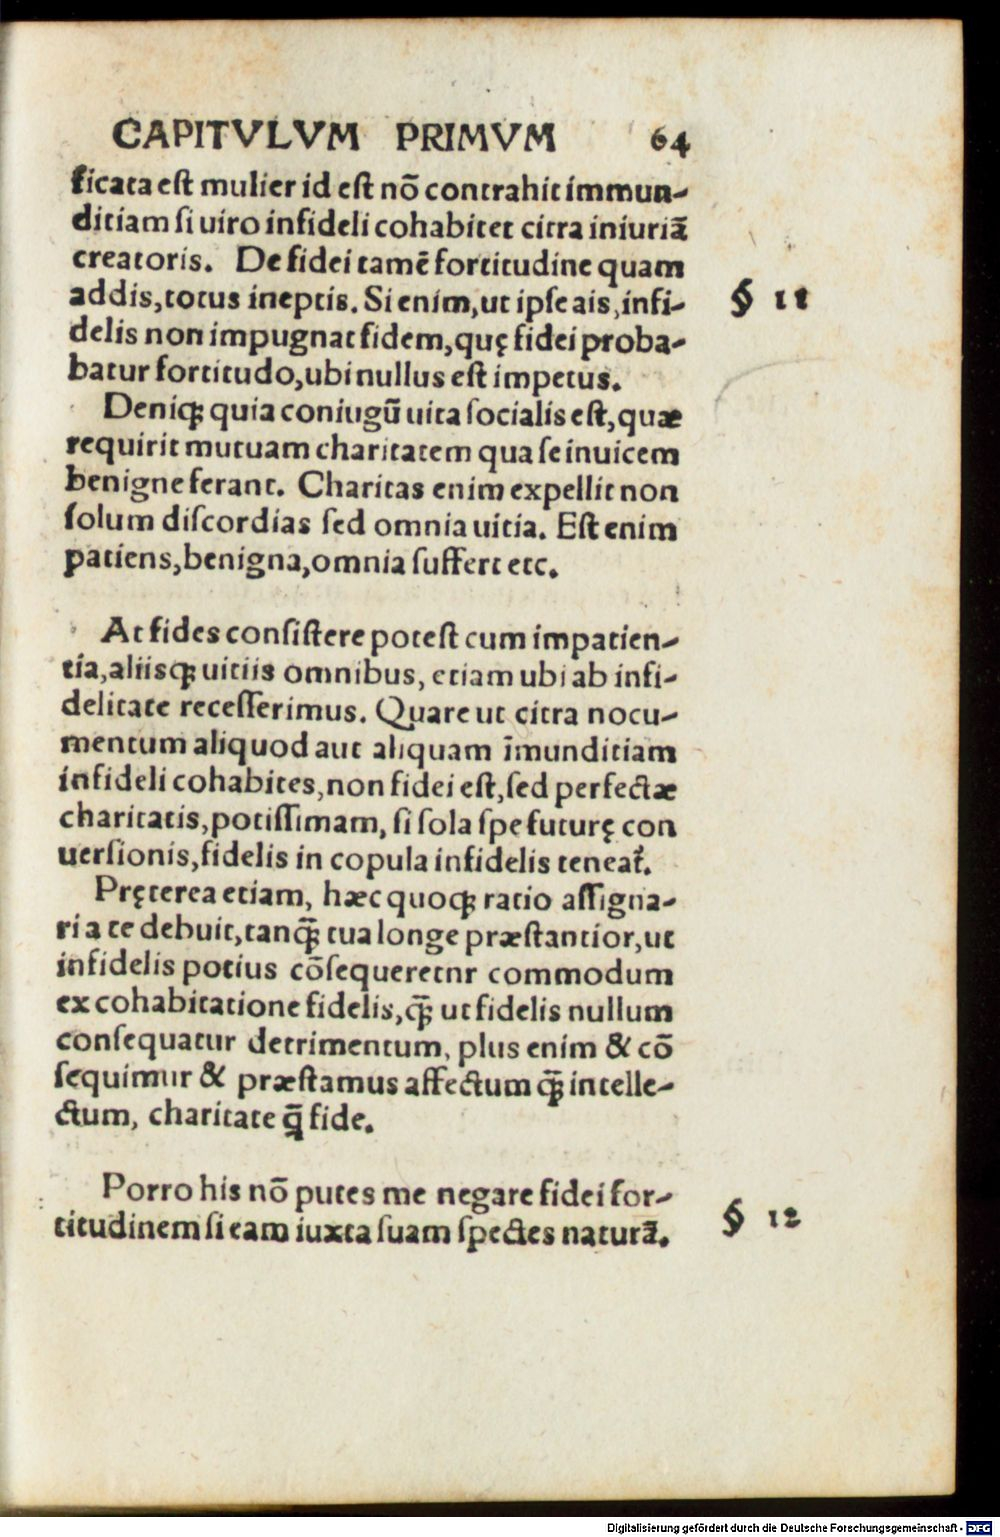 CAPITVLVM PRIMVM 64
ficata eſt mulier id eſt nõ contrahit immun-
ditiam ſi uiro infideli cohabitet citra iniuriã
creatoris. De fidei tamẽ fortitudine quam
addis, totus ineptis. Si enim, ut ipſe ais, infi-
§ 11
delis non impugnat fidem, quę fidei proba-
batur fortitudo, ubi nullus eſt impetus.
Deniqꝫ quia coniugũ uita ſocialis eſt, quæ
requirit mutuam charitatem qua ſe inuicem
benigne ferant. Charitas enim expellit non
ſolum diſcordias ſed omnia uitia. Eſt enim
patiens, benigna, omnia ſuffert etc.
At fides conſiſtere poteſt cum impatien-
tia, aliisqꝫ uitiis omnibus, etiam ubi ab infi-
delitate receſſerimus. Quare ut citra nocu-
mentum aliquod aut aliquam ĩmunditiam
infideli cohabites, non fidei eſt, ſed perfectæ
charitatis, potiſſimam, ſi ſola ſpe futurę con
uerſionis, fidelis in copula infidelis teneat᷑.
Pręterea etiam, hæc quoqꝫ ratio aſſigna-
ri a te debuit, tanqꝫ̃ tua longe præſtantior, ut
infidelis potius cõſequeretnr commodum
ex cohabitatione fidelis, qꝫ̃ ut fidelis nullum
conſequatur detrimentum, plus enim & cõ
ſequimur & præſtamus affectum qꝫ̃ intelle-
ctum, charitate q̃ fide.
Porro his nõ putes me negare fidei for-
§ 12
titudinem ſi eam iuxta ſuam ſpectes naturã.
Digitalisierung gefördert durch die Deutsche Forschungsgemeinschaft - DFG